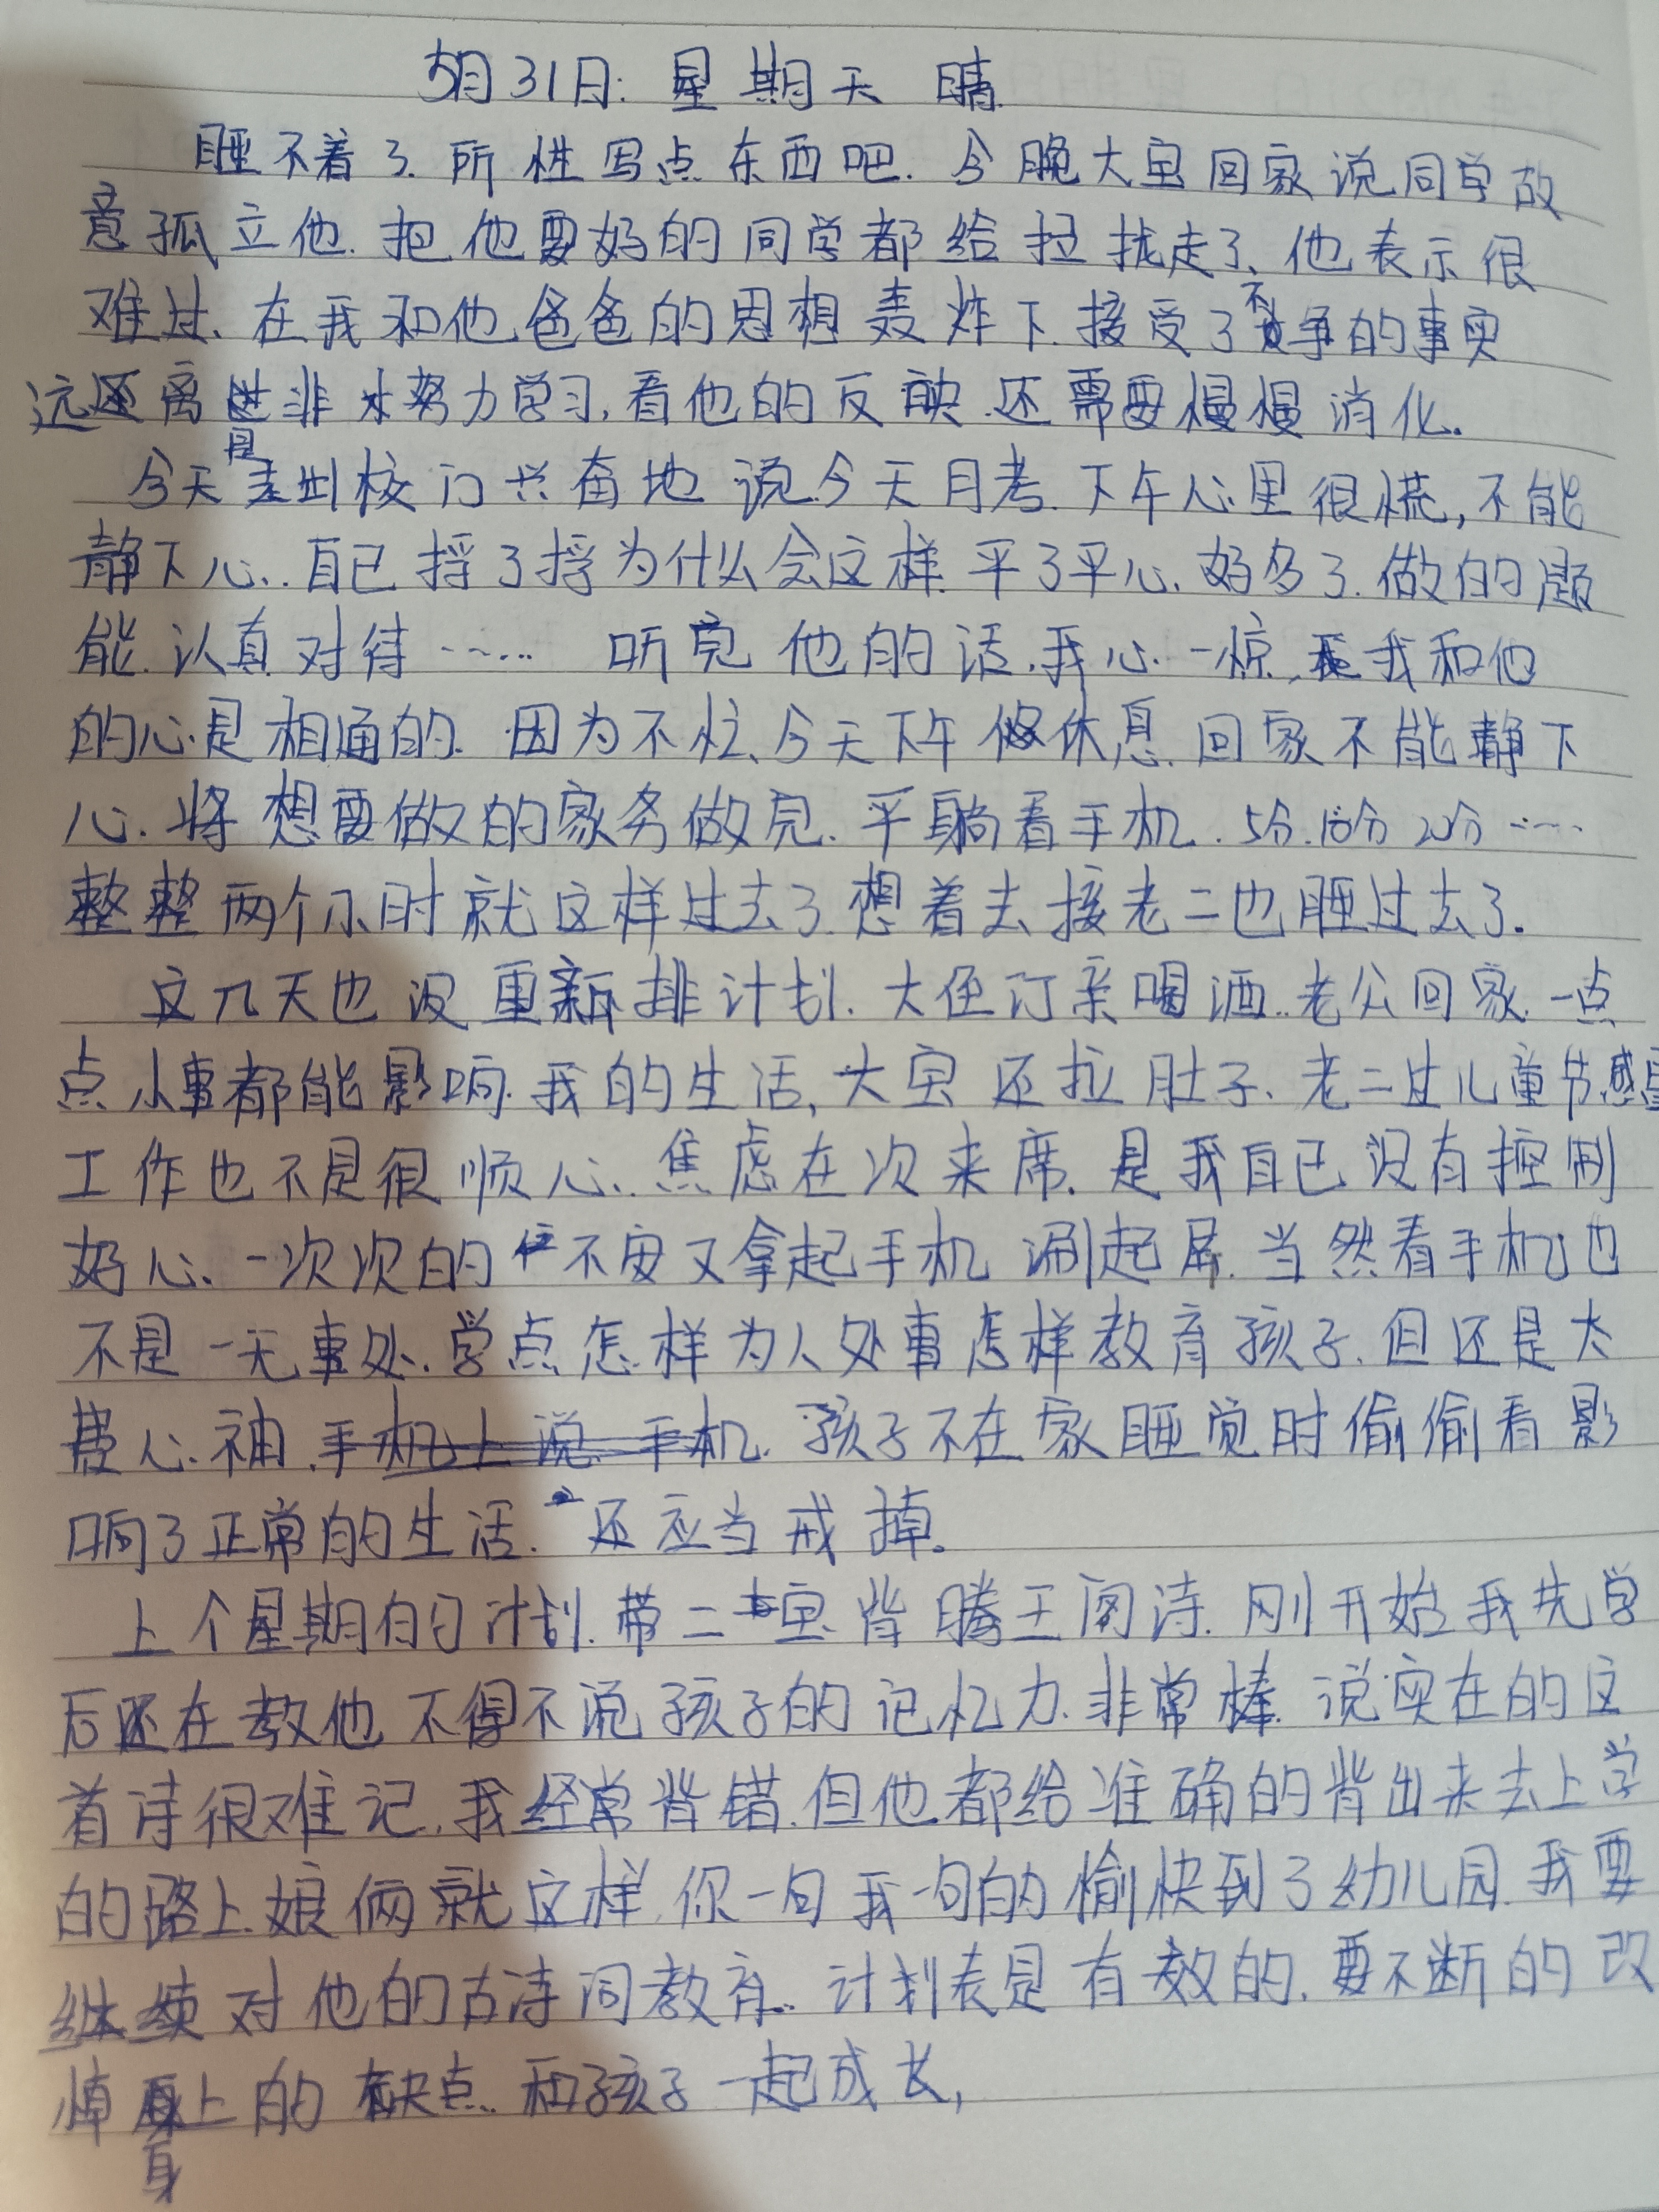 5月31日: 星期天 晴
睡不着了.所性写点东西吧.今晚大宝回家说同学故
意孤立他.把他要好的同学都给拉拢走了、他表示很
难过、在我和他爸爸的思想轰炸下.接受了不争的事实
远离是非 努力学习,看他的反映.还需要慢慢消化.
今天是走出校门兴奋地说今天月考.下午心里很慌,不能
静下心..自己捋了捋为什么会这样.平了平心、好多了.做的题
能.认真对待…… 听完他的话.我心一惊, 我和他
的心是相通的.因为不忙、今天下午休息.回家不能静下
心.将想要做的家务做完.平躺看手机.5分.10分 20分……
整整两个小时就这样过去了.想着去接老二也睡过去了.
这几天也没重新排计划.大侄订亲喝酒..老公回家.一点
点小事都能影响.我的生活,大宝还拉肚子、老二过儿童节.感冒
工作也不是很顺心、焦虑在次来席.是我自己没有控制
好心、一次次的不安又拿起手机 涮起屏.当然看手机也
不是一无事处.学点怎样为人处事怎样教育孩子.但还是太
费心.神.手机上说.手机.孩子不在家睡觉时偷偷看影
响了正常的生活. 还应当戒掉。
上个星期的计划.带二宝背腾王阁诗.刚开始我先学
后还在教他 不得不说孩子的记忆力.非常棒.说实在的这
首诗很难记.我经常背错.但他都给准确的背出来去上学
的路上.娘俩就这样.你一句我一句的愉快到了幼儿园.我要
继续对他的古诗词教育..计划表是有效的.要不断的改
悼身上的缺点 和孩子一起成长,
身